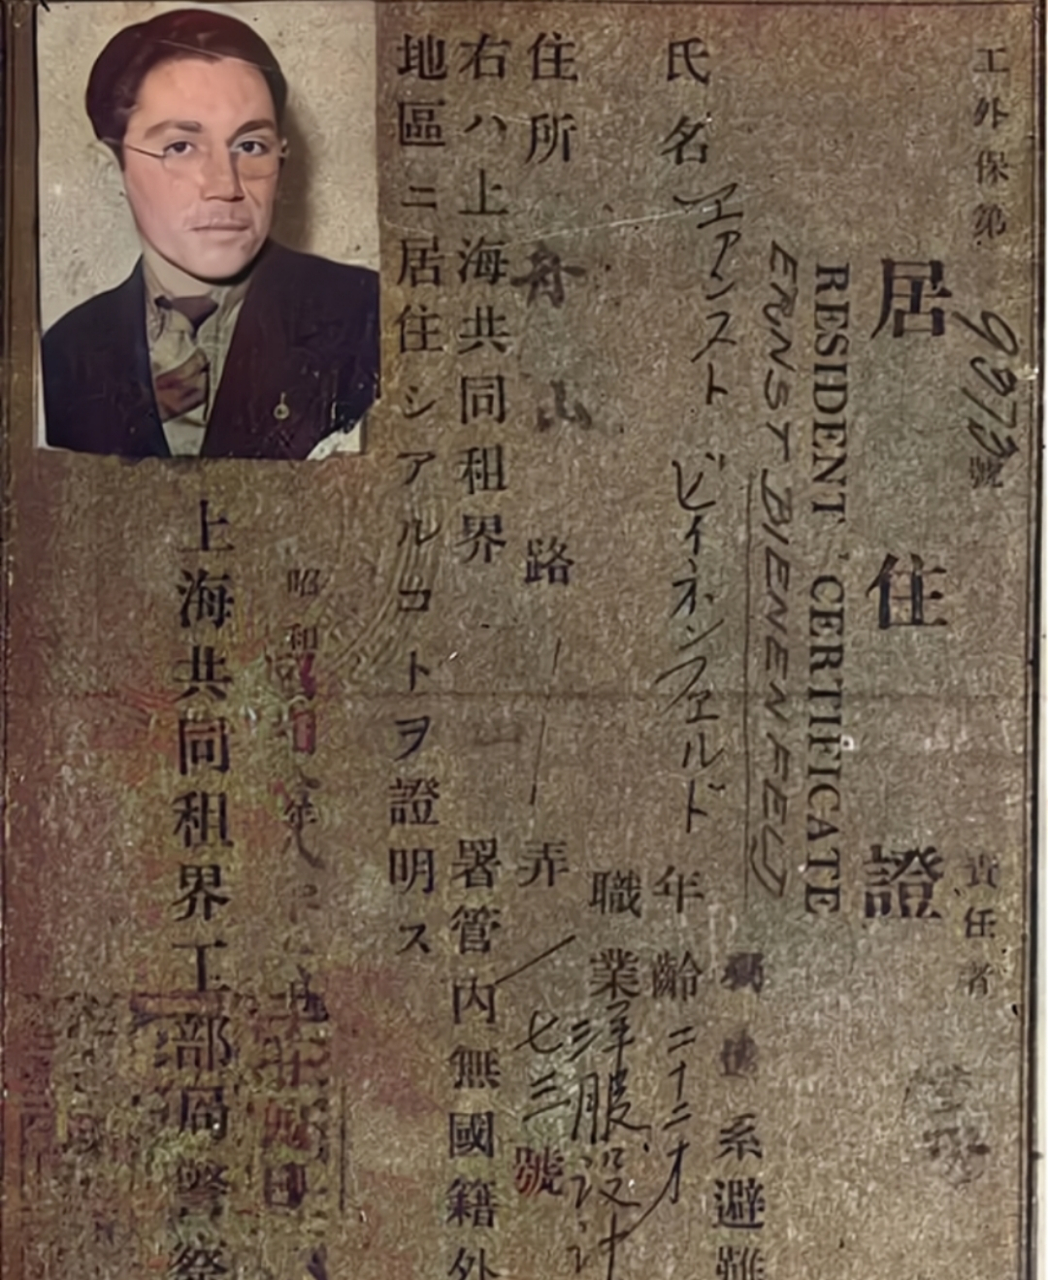 工外保第 9973 號 責任者
居住證
RESIDENT CERTIFICATE
ERNST BIENENFELD
系避難
氏名 エアンスト ビイネンフェルド 年齡 二十二才
職業 洋服設計
住所 舟山路 弄 七三號
右ハ上海共同租界 署管内無國籍外
地區ニ居住シアルコトヲ證明ス
昭和
上海共同租界工部局警察